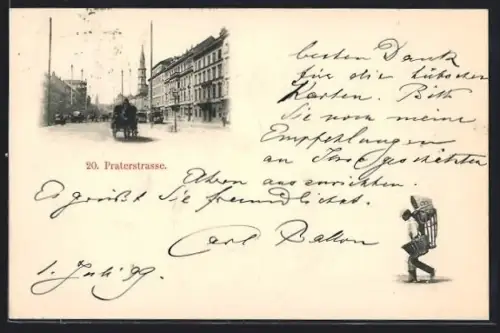 20. Praterstrasse.
besten Dank
für die hübschen
Karten. Bitte
Sie noch meine
Empfehlungen
an Ihre geschätzten
Ahren auszurichten.
Es grüßt Sie freundlichst.
Carl
1. Juli 99.